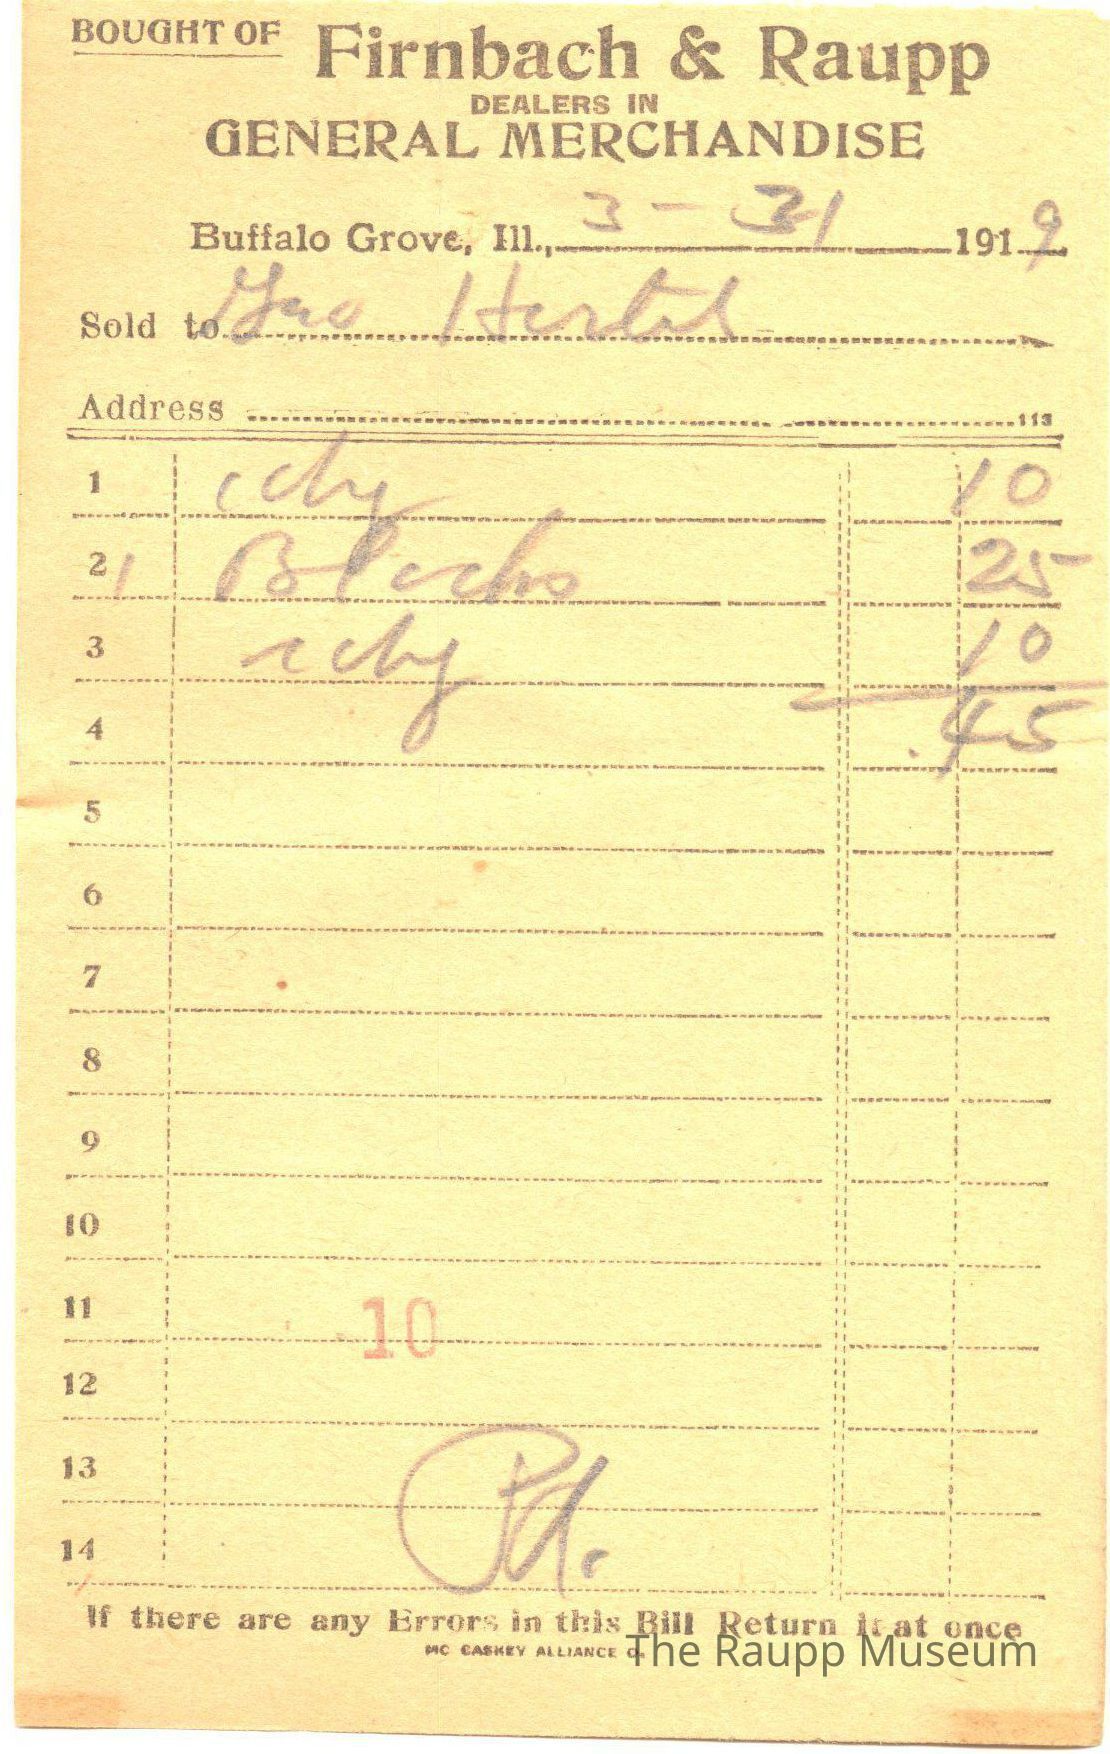 BOUGHT OF Firnbach & Raupp
DEALERS IN
GENERAL MERCHANDISE
Buffalo Grove, Ill., 3 - 31 1919
Sold to Geo Hertel
Address 113
1 10
2 1 25
3 10
4 .45
5
6
7
8
9
10
11 10
12
13
14 Pd.
If there are any Errors in this Bill Return it at once
MC CASKEY ALLIANCE O.
The Raupp Museum